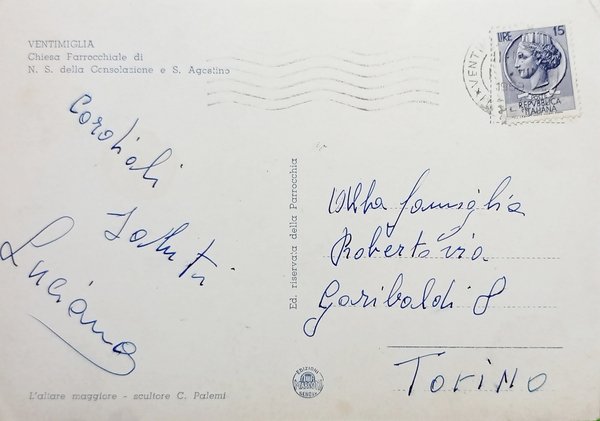 VENTIMIGLIA
Chiesa Parrocchiale di
N. S. della Consolazione e S. Agostino
LIRE 15
REPUBBLICA
ITALIANA
VENTI
Cordiali
Saluti
Luciana
Ed. riservata della Parrocchia
Alla famiglia
Roberto via
Garibaldi 8
Torino
EDIZIONI
GENOVA
L'altare maggiore - scultore C. Palemi